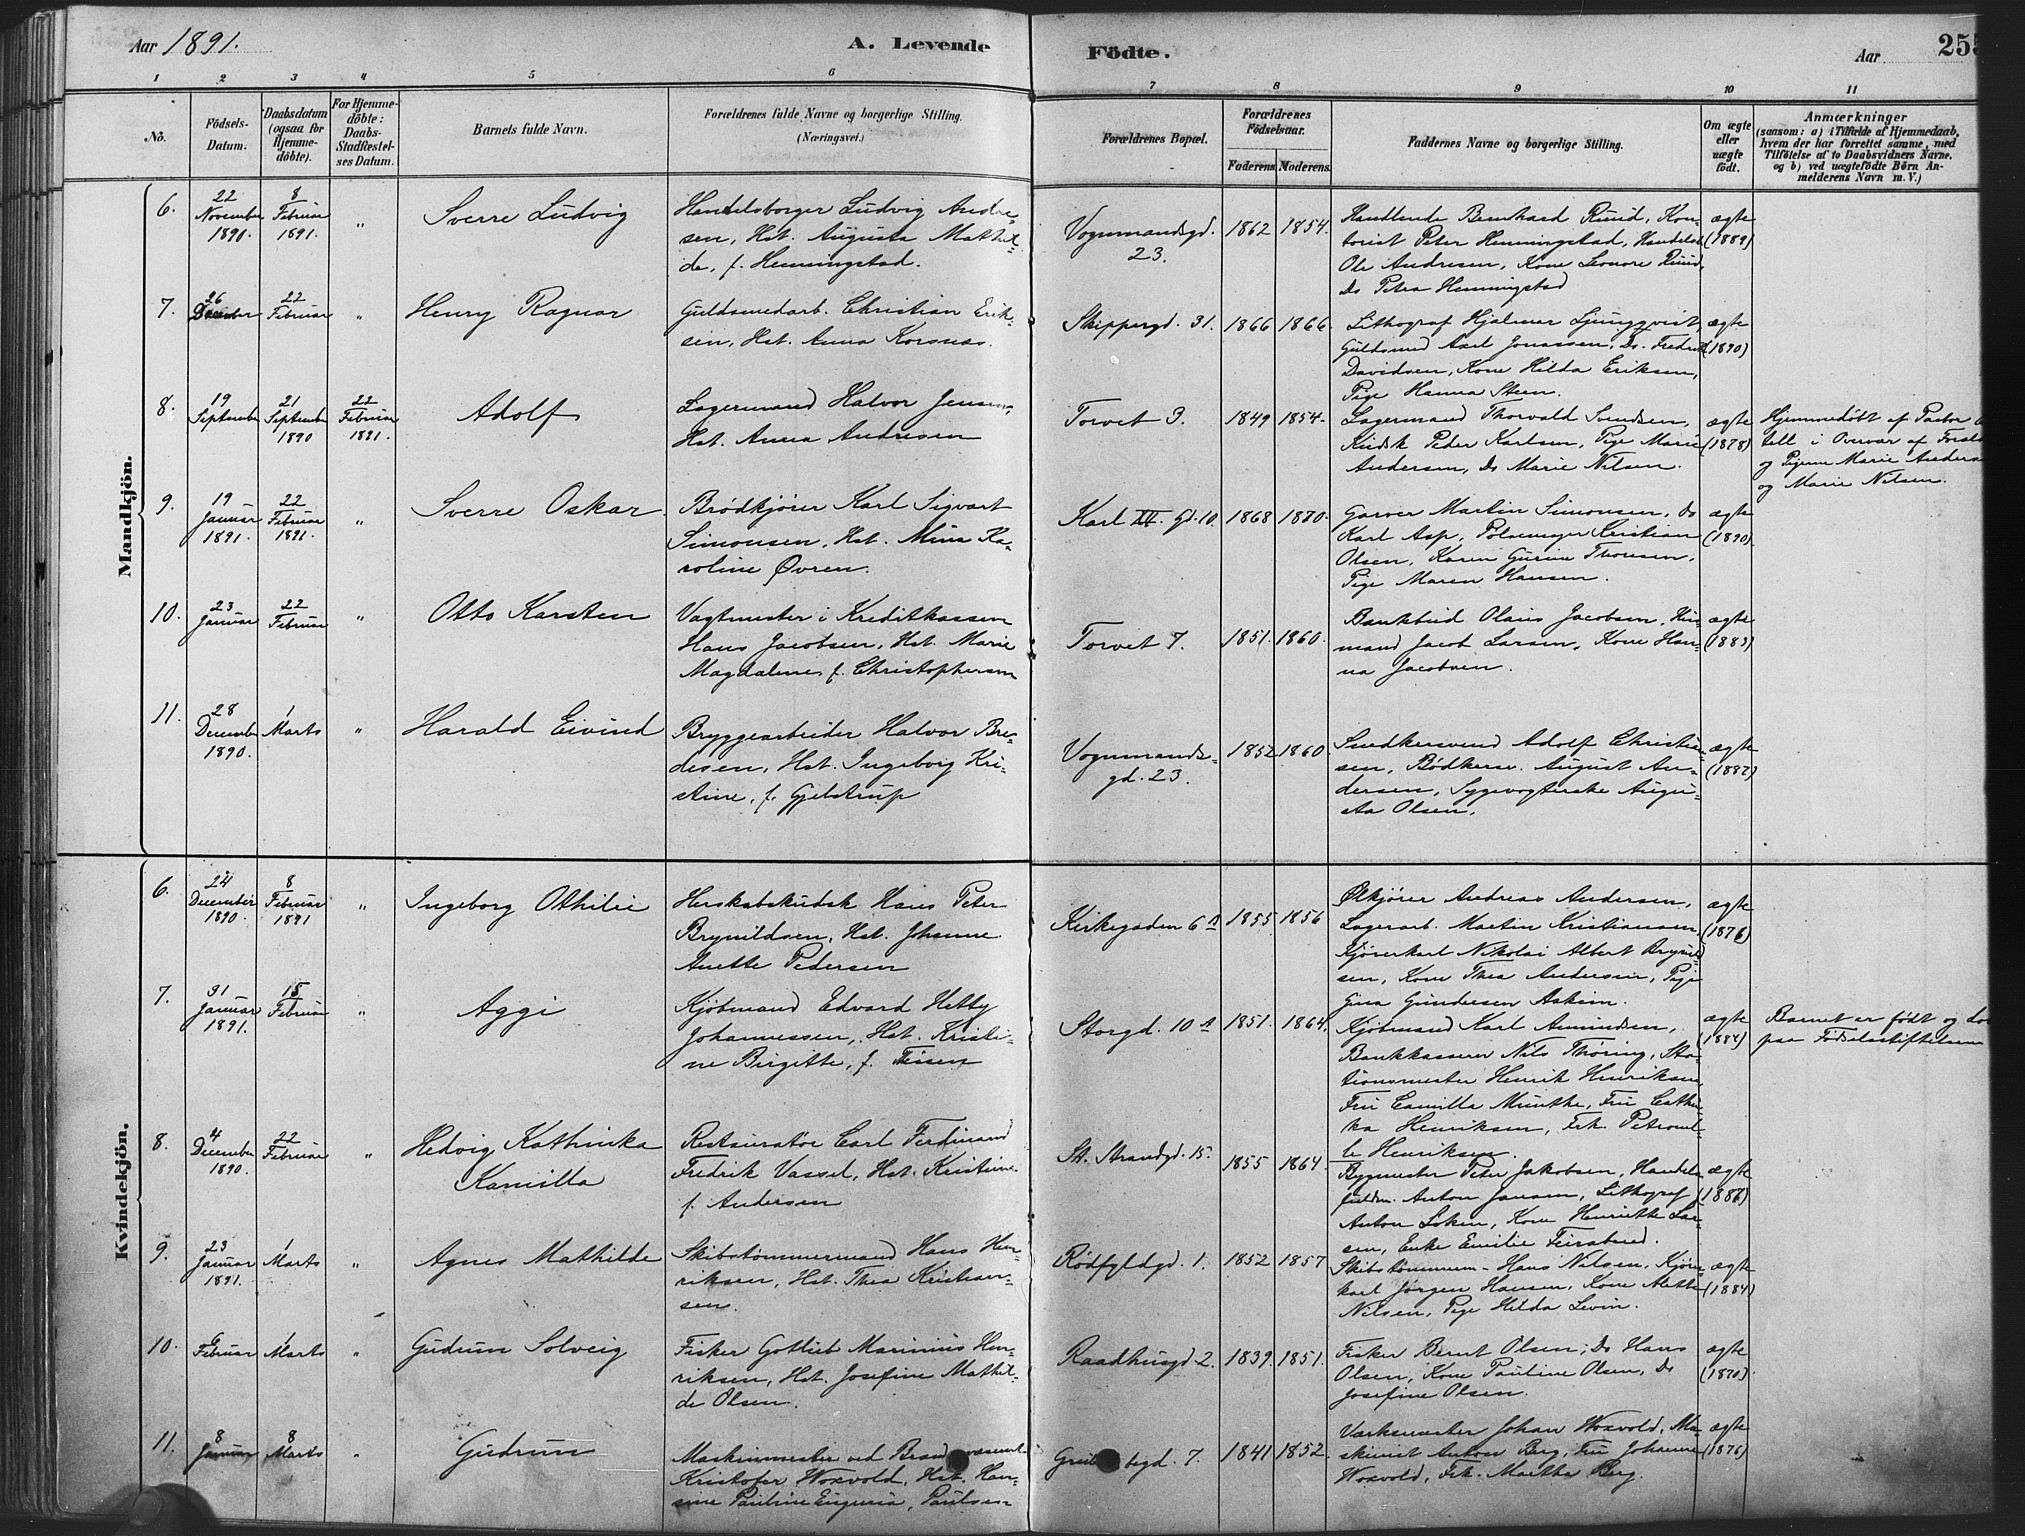 Aar 1891. A. Levende Födte. Aar 255
1 2 3 4 5 6 7 8 9 10 11
No.
Födsels-
Datum.
Daabsdatum
(ogsaa for
Hjemme-
döbte).
For Hjemme-
döbte:
Daabs-
Stadfæstel-
ses Datum.
Barnets fulde Navn.
Forældrenes fulde Navne og borgerlige Stilling.
(Næringsvei.)
Forældrenes Bopæl.
Forældrenes
Födselsaar.
Faderens. Moderens.
Faddernes Navne og borgerlige Stilling.
Om ægte
eller
uægte
födt.
Anmærkninger
(saasom: a) i Tilfælde af Hjemmedaab,
hvem der har forrettet samme, med
Tilföielse af to Daabsvidners Navne,
og b) ved uægtefödte Börn An-
melderens Navn m. V.)
Mandkjön.
6.
22
November
1890.
8
Februar
1891.
"
Sverre Ludvig
Handelsborger Ludvig Andre-
sen, Hst. Augusta Mathil-
de, f. Henningstad.
Vognmandsgd.
23.
1862 1854.
Handlende Bernhard Ruud, Kon-
torist Peter Henningstad, Handelsb.
Ole Andresen, Kone Leonore Ruud,
Do Petra Henningstad
ægte
(1889)
7.
26
22
Februar
"
Henry Ragnar
Guldsmedarb. Christian Erik-
sen, Hst. Anna Korsnes.
Skippergd. 31.
1866 1866.
Lithograf Hjalmar Ljungqvist,
Guldsmed Axel Jonassen, Do. Fredrik
Davidsen, Kone Hilda Eriksen,
Pige Hanna Steen.
ægte
(1890)
8.
19
September
21
September
1890
22
Februar
1891.
Adolf
Lagermand Halvor Jensen,
Hst. Anna Andresen
Torvet 3.
1849 1854.
Lagermand Thorvald Svendsen,
Kudsk Peder Karlsen, Pige Marie
Andersen, Do Marie Nilsen.
ægte
(1878)
Hjemmedøbt af Pastor
i Overvær af
og Pigerne Marie Anders
og Marie Nilsen.
9.
19
Januar
1891.
22
Februar
1891.
"
Sverre Oskar.
Brødkjører Karl Sigvart
Simonsen, Hst. Mina Ka-
roline Øvren.
Karl XII. gd. 10.
1868 1870.
Garver Martin Simonsen, Do
Karl Asp, Pølsemager Kristian
Olsen, Karen Gurine Thoresen,
Pige Maren Hansen.
ægte
(1890)
10.
23
Januar
22
Februar
"
Otto Karsten
Vagtmester i Kreditkassen
Hans Jacobsen, Hst. Marie
Magdalene, f. Christophersen
Torvet 7.
1851. 1860.
Bankbud Olaus Jacobsen,
mand Jacob Larsen, Kone Han-
na Jacobsen.
ægte
(1883)
11.
28
December
1890.
1
Marts
"
Harald Eivind
Bryggearbeider Halvor Bre-
desen, Hst. Ingeborg Kri-
stine, f. Gjelstrup
Vognmands-
gd. 23.
1852 1860
Snedkersvend Adolf Christian-
sen, Bødkersv. August An-
dersen, Sygevogterske Augu-
sta Olsen.
ægte
(1882)
Kvindekjön.
6.
24
December
1890.
8
Februar
1891
"
Ingeborg Othilie
Herskabskudsk Hans Peter
Brynildsen, Hst. Johanne
Anette Pedersen
Kirkegaden 6 a
1855 1856
Ølkjører Andreas Andersen,
Lagerarb. Martin Kristiansen,
Kjørerkarl Nikolai Albert Brynild-
sen, Kone Thea Andersen, Pige
Gina Gundersen Askim.
ægte
(1876)
7.
31
Januar
1891.
15
Februar
"
Aggi
Kjøbmand Edvard Hetty
Johannessen, Hst. Kristi-
ne Birgette, f.
Storgd. 10 a
1851. 1864.
Kjøbmand Karl Amundsen,
Bankkasserer Nils Thøring, Sta-
tionsmester Henrik Henriksen,
Fru Camilla Munthe, Fru Cathin-
ka Henriksen, Frk. Petronel-
le Henriksen.
ægte
(1884)
Barnet er født og
paa Fødselsstiftelsen
8.
4
December
1890.
22
Februar
"
Hedvig Kathinka
Kamilla
Restauratør Carl Ferdinand
Fredrik Vassel, Hst. Kristine
f. Andersen
St. Strandgd. 15.
1855 1864.
Bygmester Peter Jakobsen, Handels-
fuldm. Anton Jansen, Lithograf
Anton Loken, Kone Henriette Lar-
sen, Enke Emilie Feiraband.
ægte
9.
23
Januar
1891.
1
Marts
"
Agnes Mathilde
Skibstømmermand Hans Hen-
riksen, Hst. Thea Kristian-
sen.
Rødfyldgd. 1.
1852 1857
Skibstømmerm. Hans Nilsen, Kjøre-
karl Jørgen Hansen, Kone Alette
Nilsen, Pige Hilda Levin.
ægte
(1884)
10.
6
Februar
1
Marts
"
Gudrun Solveig
Fisker Gotlieb Marinius Hen-
riksen, Hst. Josefine Mathil-
de Olsen.
Raadhusgd. 2.
1839. 1851.
Fisker Bernt Olsen, Do Hans
Olsen, Kone Pauline Olsen, Do
Josefine Olsen.
ægte
(1870)
11.
8
Januar
8
Marts
"
Gudrun
Maskinmester ved Brandvæsenet
Kristofer Woxvold, Hst. Han-
sine Pauline Eugenia, Paulsen
1841 1852.
Værksmester Johan Woxvold, Ma-
skinist Anton Berg, Fru Johanne
Woxvold, Frk. Marthe Berg.
ægte
(1876)